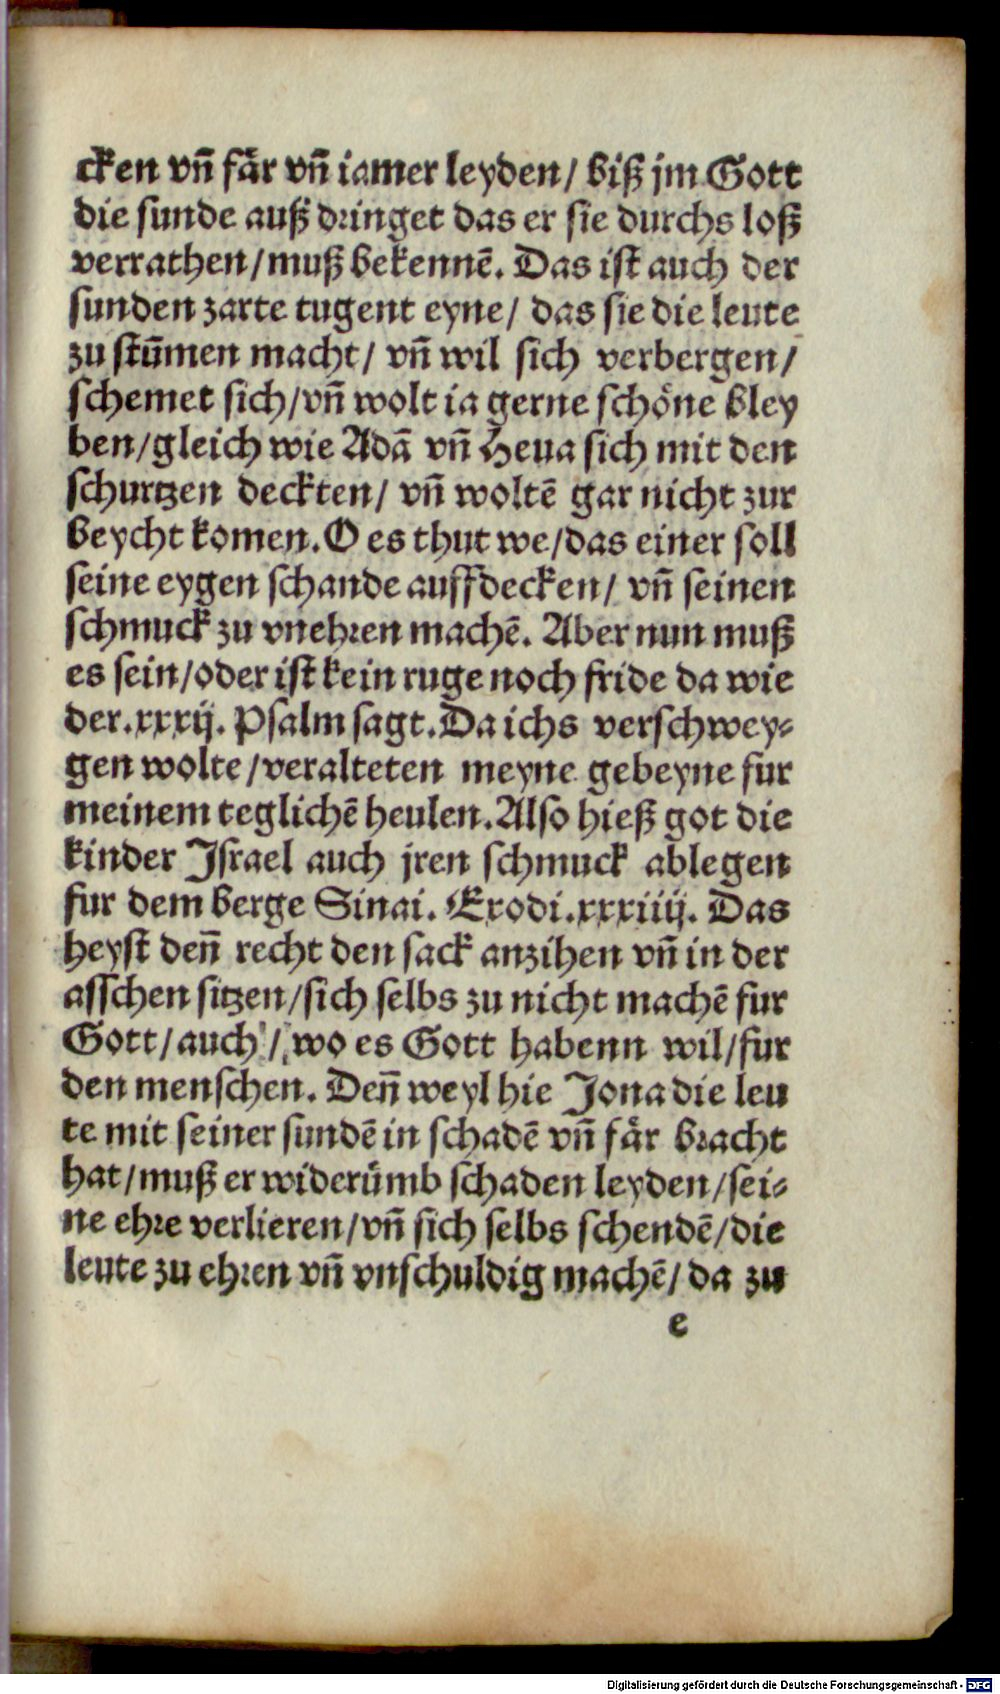 cken vñ fär vñ iamer leyden/ biß jm Gott
die sunde auß dringet das er sie durchs loß
verrathen/muß bekennē. Das ist auch der
sunden zarte tugent eyne/ das sie die leute
zu stūmen macht/ vñ wil sich verbergen/
schemet sich/vñ wolt ia gerne schöne bley
ben/gleich wie Adā vñ Heua sich mit den
schurtzen deckten/ vñ woltē gar nicht zur
beycht komen. O es thut we/das einer soll
seine eygen schande auffdecken/ vñ seinen
schmuck zu vnehren machē. Aber nun muß
es sein/oder ist kein ruge noch fride da wie
der.xxxij. Psalm sagt. Da ichs verschwey-
gen wolte/veralteten meyne gebeyne fur
meinem teglichē heulen. Also hieß got die
kinder Israel auch jren schmuck ablegen
fur dem berge Sinai. Exodi.xxxiiij. Das
heyst deñ recht den sack anzihen vñ in der
asschen sitzen/sich selbs zu nicht machē fur
Gott/auch/ wo es Gott habenn wil/fur
den menschen. Deñ weyl hie Jona die leu
te mit seiner sundē in schadē vñ fär bracht
hat/muß er widerümb schaden leyden/sei-
ne ehre verlieren/vñ sich selbs schendē/die
leute zu ehren vñ vnschuldig machē/ da zu
e
Digitalisierung gefördert durch die Deutsche Forschungsgemeinschaft - DFG